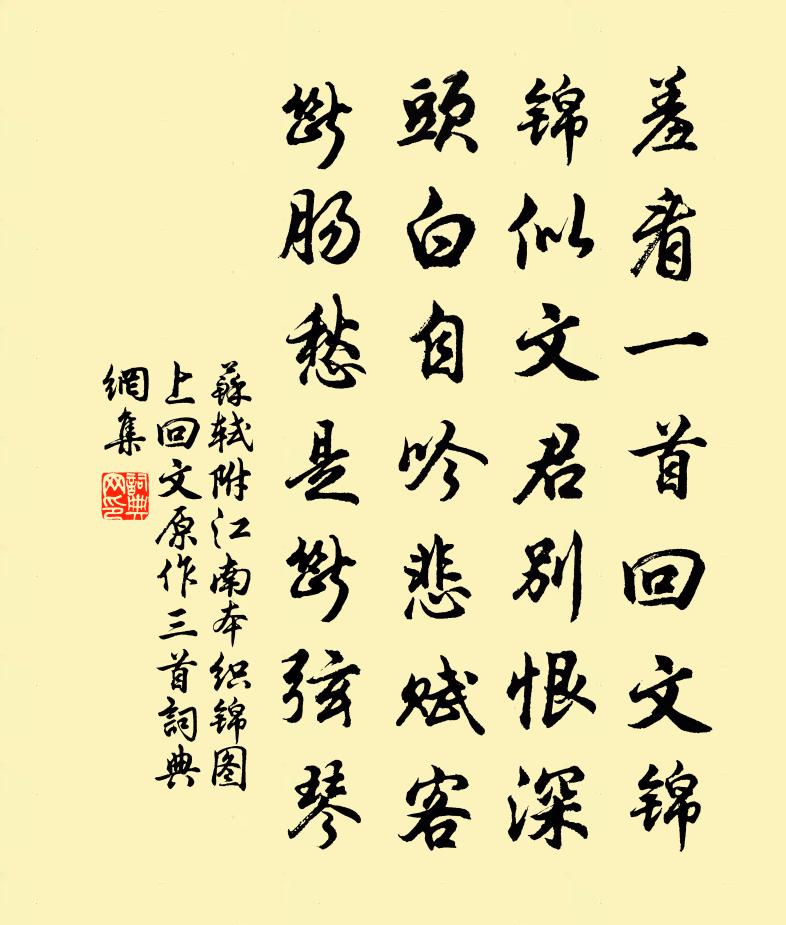 羞看一首回文锦
锦似文君别恨深
頭白自吟悲赋客
断肠愁是断弦琴
蘇轼附江南本织锦图
上回文原作三首詞典
網集
詞典
网印